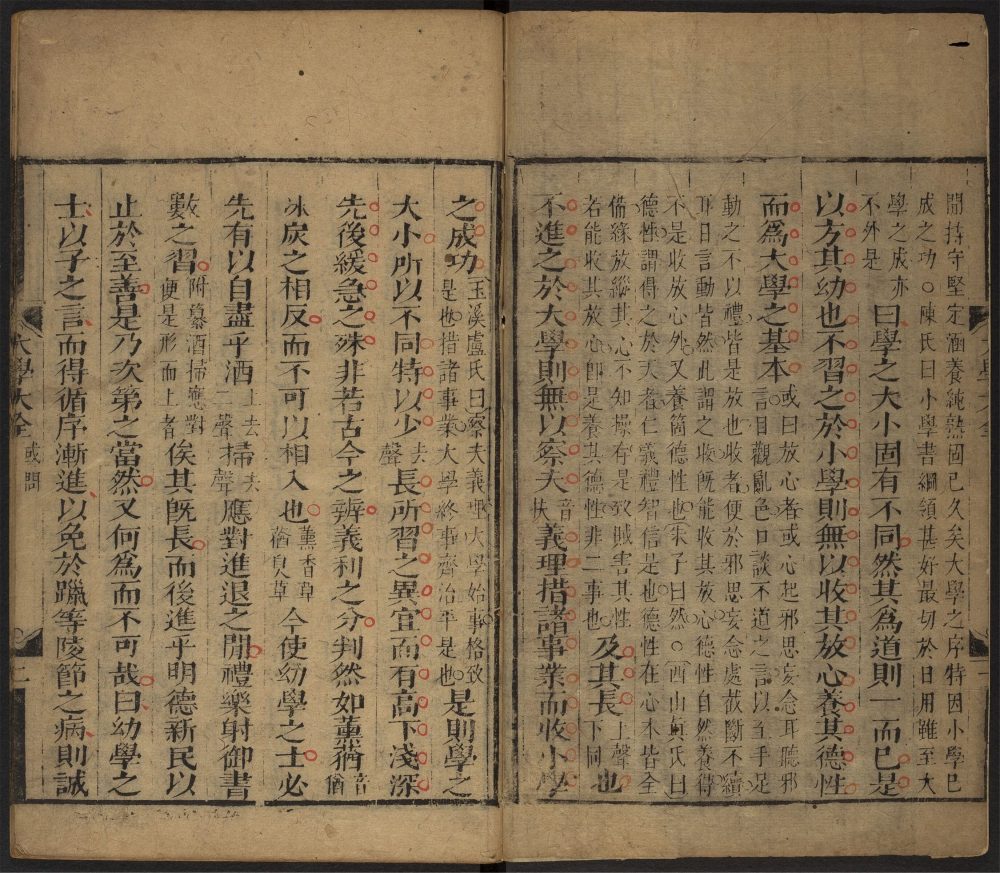 閒持守堅定涵養純熟固已久矣大學之序特因小學已
成之功○陳氏曰小學書綱領甚好最切於日用雖至大
學之成亦
不外是
曰學之大小固有不同然其為道則一而已是
以方其幼也不習之於小學則無以收其放心養其德性
而為大學之基本
或曰放心者或心起邪思妄念耳聽邪
言目觀亂色口談不道之言以至手足
動之不以禮皆是放也收者便於邪思妄念處截斷不續
耳目言動皆然此謂之收旣能收其放心德性自然養得
不是收放心外又養箇德性也朱子曰然○西山真氏曰
德性謂得之於天者仁義禮智信是也德性在心本皆全
備緣放縱其心不知操存是致賊害其性
若能收其放心即是養其德性非二事也
及其長
上聲
下同
也
不進之於大學則無以察夫
音
扶
義理措諸事業而收小學
之成功
玉溪盧氏曰察夫義理大學始事格致
是也措諸事業大學終事齊治平是也
是則學之
大小所以不同特以少
去
聲
長所習之異宜而有高下淺深
先後緩急之殊非若古今之辨義利之分判然如薰蕕
音
猶
冰炭之相反而不可以相入也
薰香草
蕕臭草
今使幼學之士必
先有以自盡乎洒
上去
二聲
掃
去
聲
應對進退之閒禮樂射御書
數之習
附纂洒掃應對
便是形而上者
俟其旣長而後進乎明德新民以
止於至善是乃次第之當然又何為而不可哉曰幼學之
士以子之言而得循序漸進以免於躐等陵節之病則誠
大學大全
或問